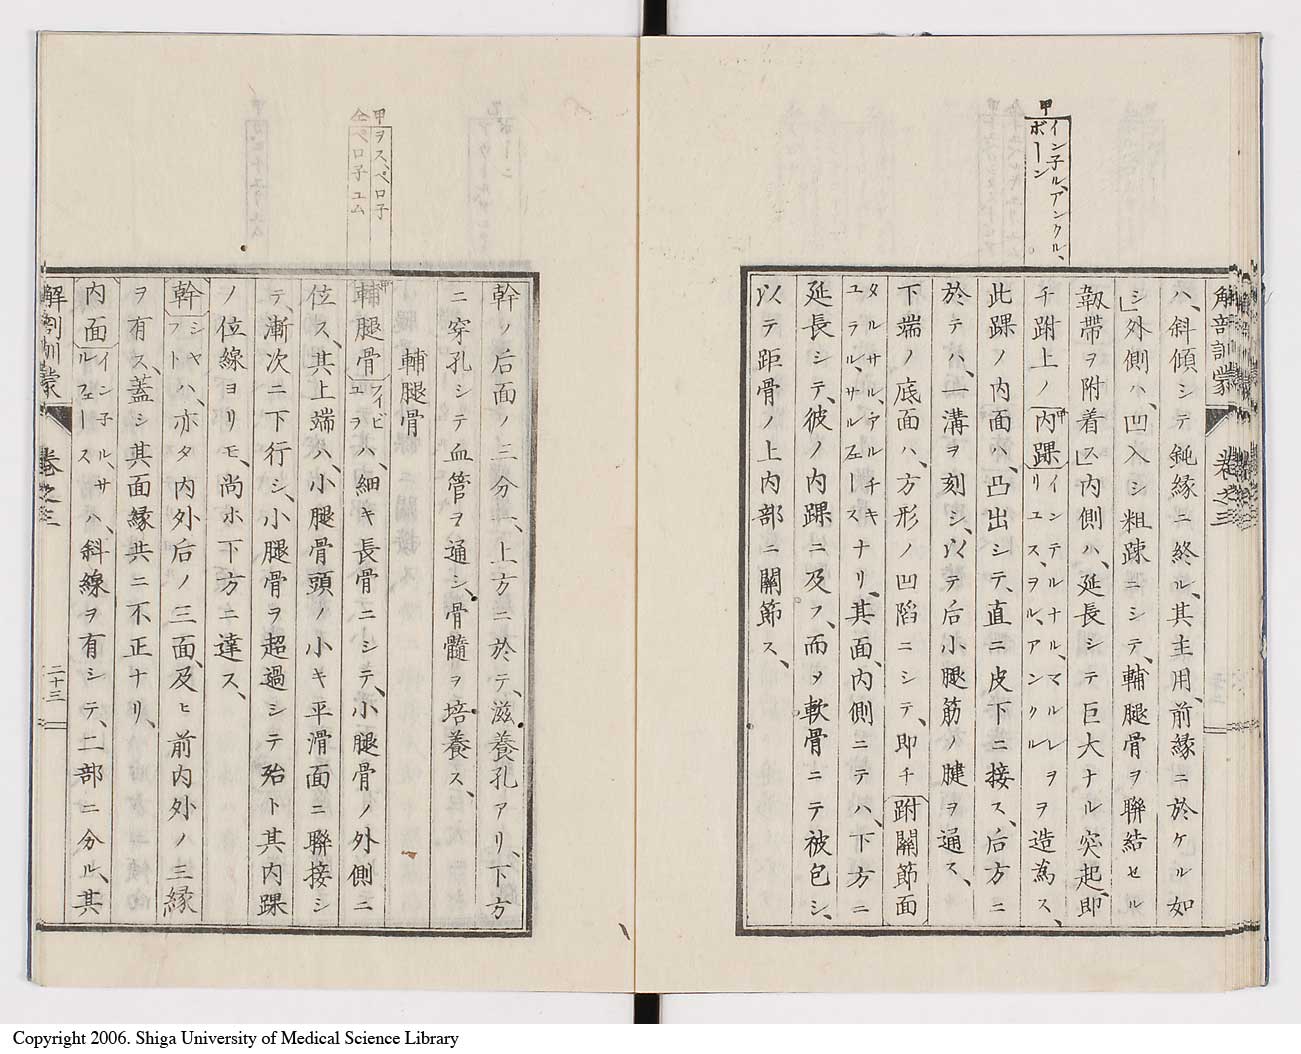 甲
イン子ル、アンクル、
ボーン
解剖訓蒙
卷之二
ハ、斜傾シテ鈍緣ニ終ル、其主用、前緣ニ於ケル如
シ」外側ハ、凹入シ粗踈ニシテ、輔腿骨ヲ聯結セル
韌帶ヲ附着ス」内側ハ、延長シテ巨大ナル突起、即
チ跗上ノ内踝インテルナル、マルレヲヲ造爲ス、
リユス、ヲル、アンクル
甲
此踝ノ内面ハ、凸出シテ、直ニ皮下ニ接ス、后方ニ
於テハ、一溝ヲ刻シ、以テ后小腿筋ノ腱ヲ通ス、
下端ノ底面ハ、方形ノ凹陷ニシテ、即チ跗關節面
タルサル、アルチキ
ユラル、サルフェースナリ、其面、内側ニテハ、下方ニ
延長シテ、彼ノ内踝ニ及フ、而ヲ軟骨ニテ被包シ、
以テ距骨ノ上内部ニ關節ス、
甲ヲス、ペロ子
仝ペロ子ユム
幹ノ后面ノ三分一、上方ニ於テ、滋養孔アリ、下方
ニ穿孔シテ血管ヲ通シ、骨髓ヲ培養ス、
輔腿骨
輔腿骨フイビ
ユヲハ、細キ長骨ニシテ、小腿骨ノ外側ニ
甲
位ス、其上端ハ、小腿骨頭ノ小キ平滑面ニ聯接シ
テ、漸次ニ下行シ、小腿骨ヲ超過シテ殆ト其内踝
ノ位線ヨリモ、尚ホ下方ニ達ス、
幹シヤ
フトハ、亦タ内外后ノ三面、及ヒ前内外ノ三緣
ヲ有ス、蓋シ其面緣共ニ不正ナリ、
内面イン子ル、サ
ルフェースハ、斜線ヲ有シテ、二部ニ分ル、其
解剖訓蒙
卷之二
二十三
Copyright 2006. Shiga University of Medical Science Library